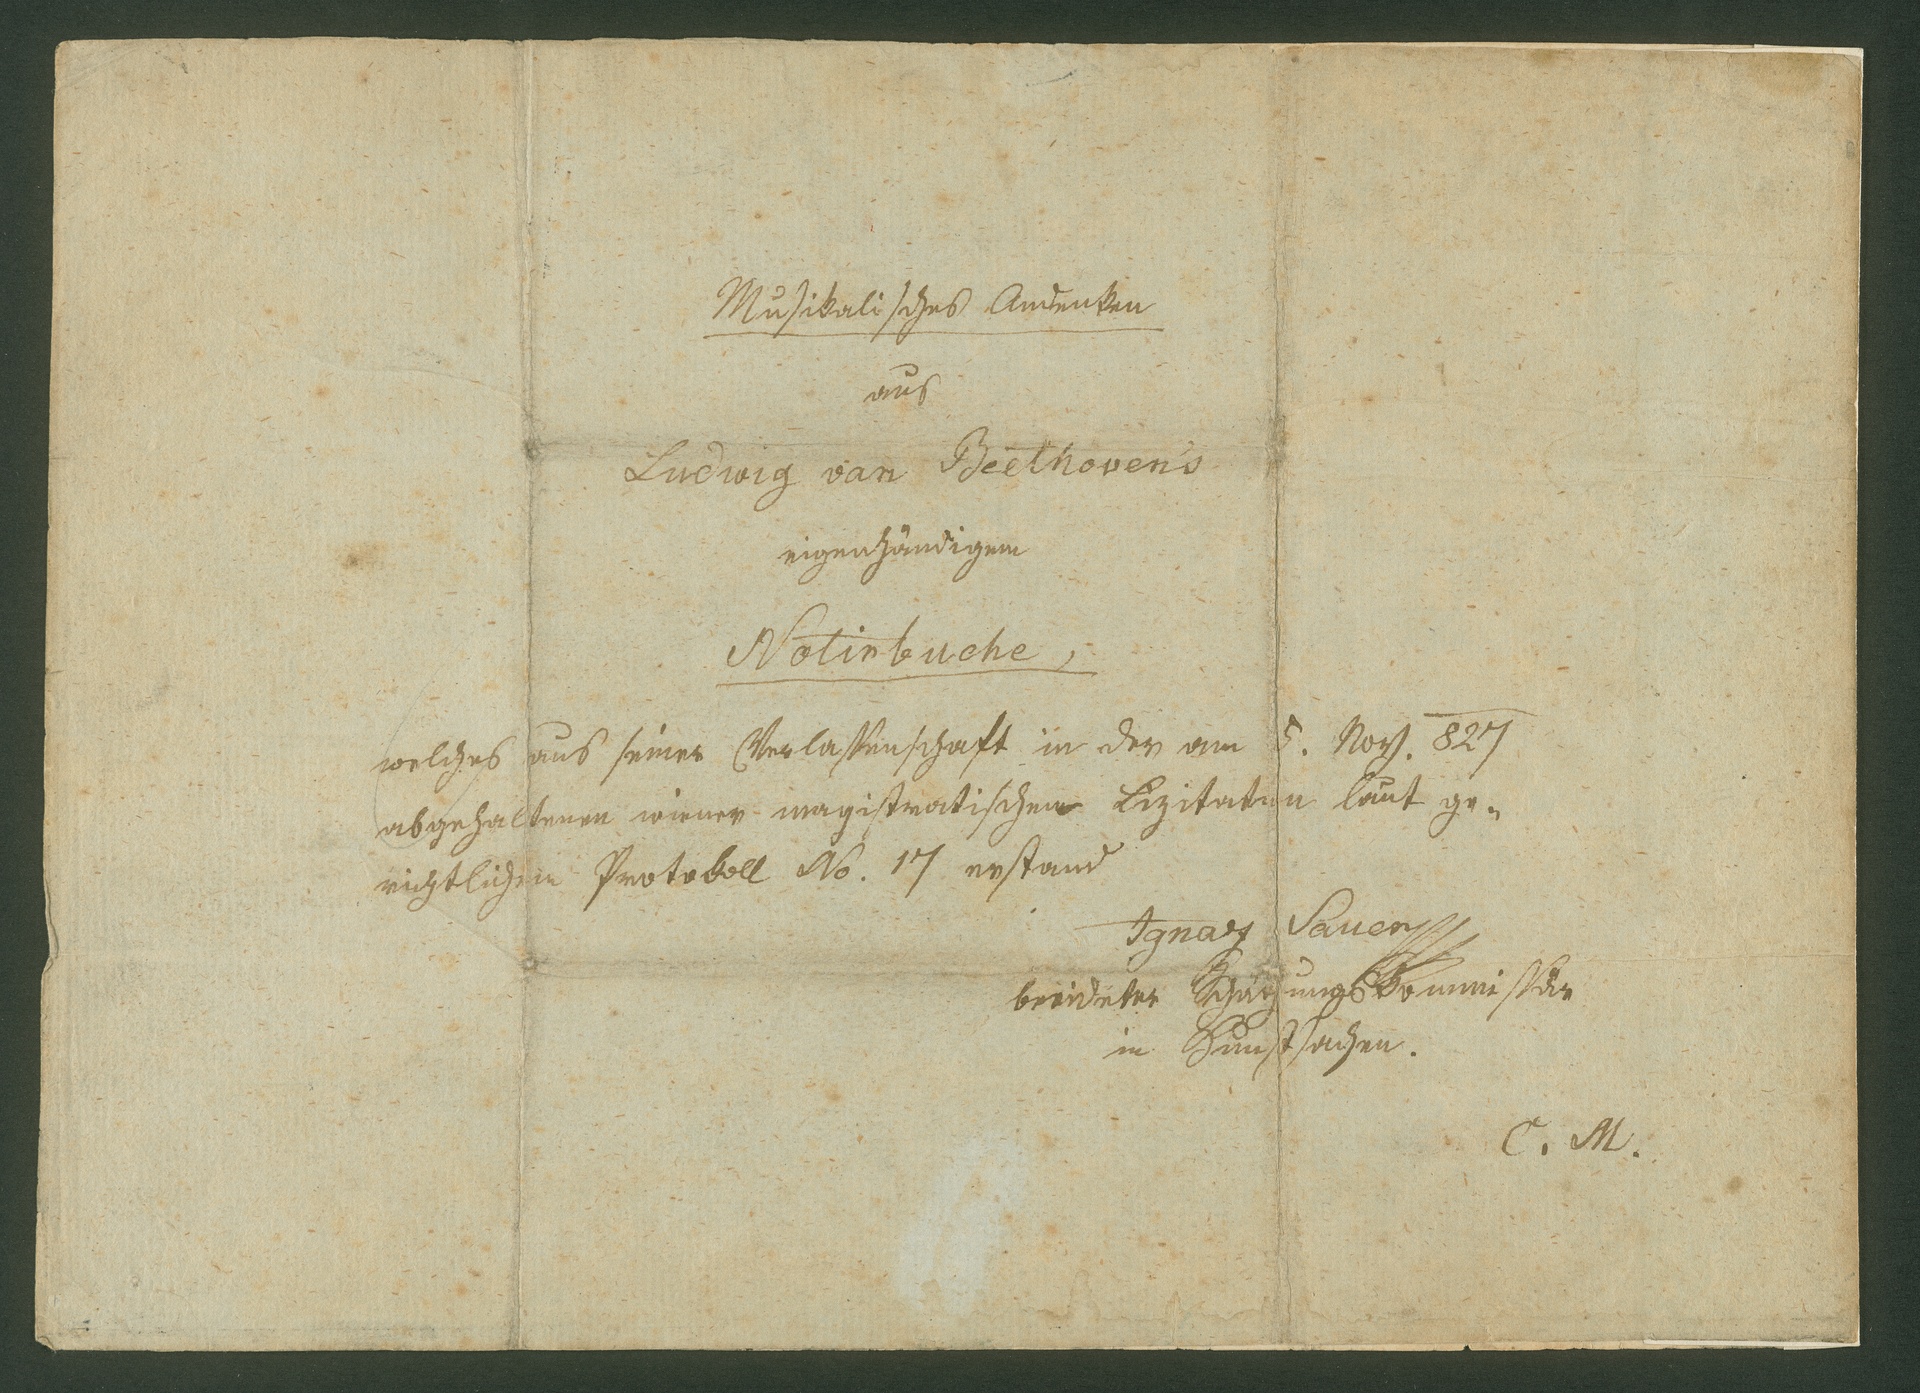 Musikalisches Andenken
aus
Ludwig van Beethoven's
eigenhändigem
Notirbuche,
welches aus seiner Verlassenschaft in der am 5. Nov. 827
abgehaltenen wiener magistratischen Lizitation laut ge-
richtlichem Protokoll No. 17 erstand
Ignaz Sauer
beeideter Schätzungskommissär
in Kunstsachen.
C. M.